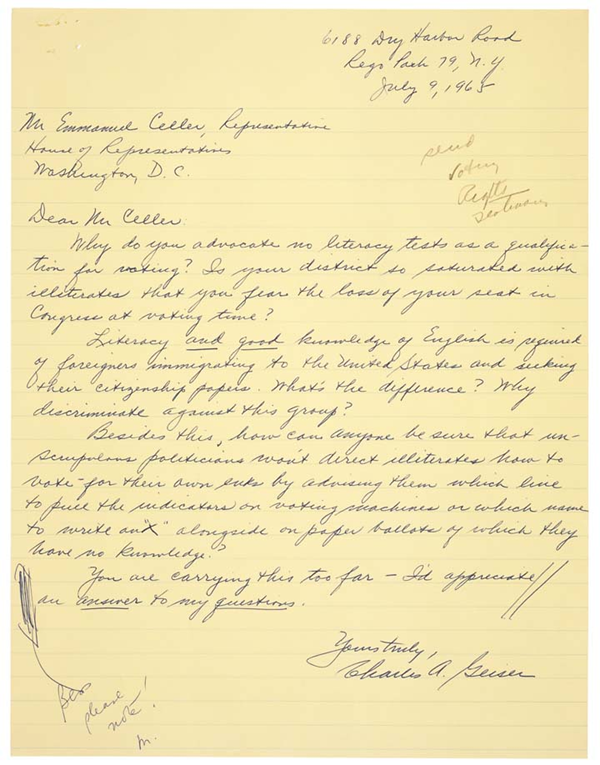 6188 Dry Harbor Road
Rego Park 79, N.Y.
July 9, 1965
Mr Emmanuel Celler, Representative
House of Representatives
Washington, D.C.
send
voting
Rights
Dear Mr Celler:
Why do you advocate no literacy tests as a qualifica-
tion for voting? Is your district so saturated with
illiterates that you fear the loss of your seat in
Congress at voting time?
Literacy and good knowledge of English is required
of foreigners immigrating to the United States and seeking
their citizenship papers. What's the difference? Why
discriminate against this group?
Besides this, how can anyone be sure that un-
scrupulous politicians won't direct illiterates how to
vote for their own ends by advising them which line
to pull the indicators on voting machines or which name
to write an "X" alongside on paper ballots of which they
have no knowledge?
You are carrying this too far - I'd appreciate
an answer to my questions.
Yours truly,
Charles A. Geiser
please
note!
m.